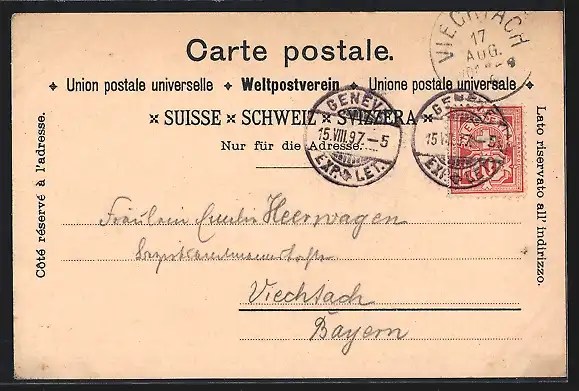 VIECHTACH
17
AUG.
Carte postale.
Union postale universelle ✦ Weltpostverein ✦ Unione postale universale
SUISSE × SCHWEIZ × SVIZZERA
Nur für die Adresse.
GENÈVE
15.VIII.97–5
EXP. LET.
GENÈVE
15.VIII.97–5
EXP. LET.
Côté réservé à l'adresse.
Lato riservato all' indirizzo.
Fräulein Emilie Heerwagen
Viechtach
Bayern